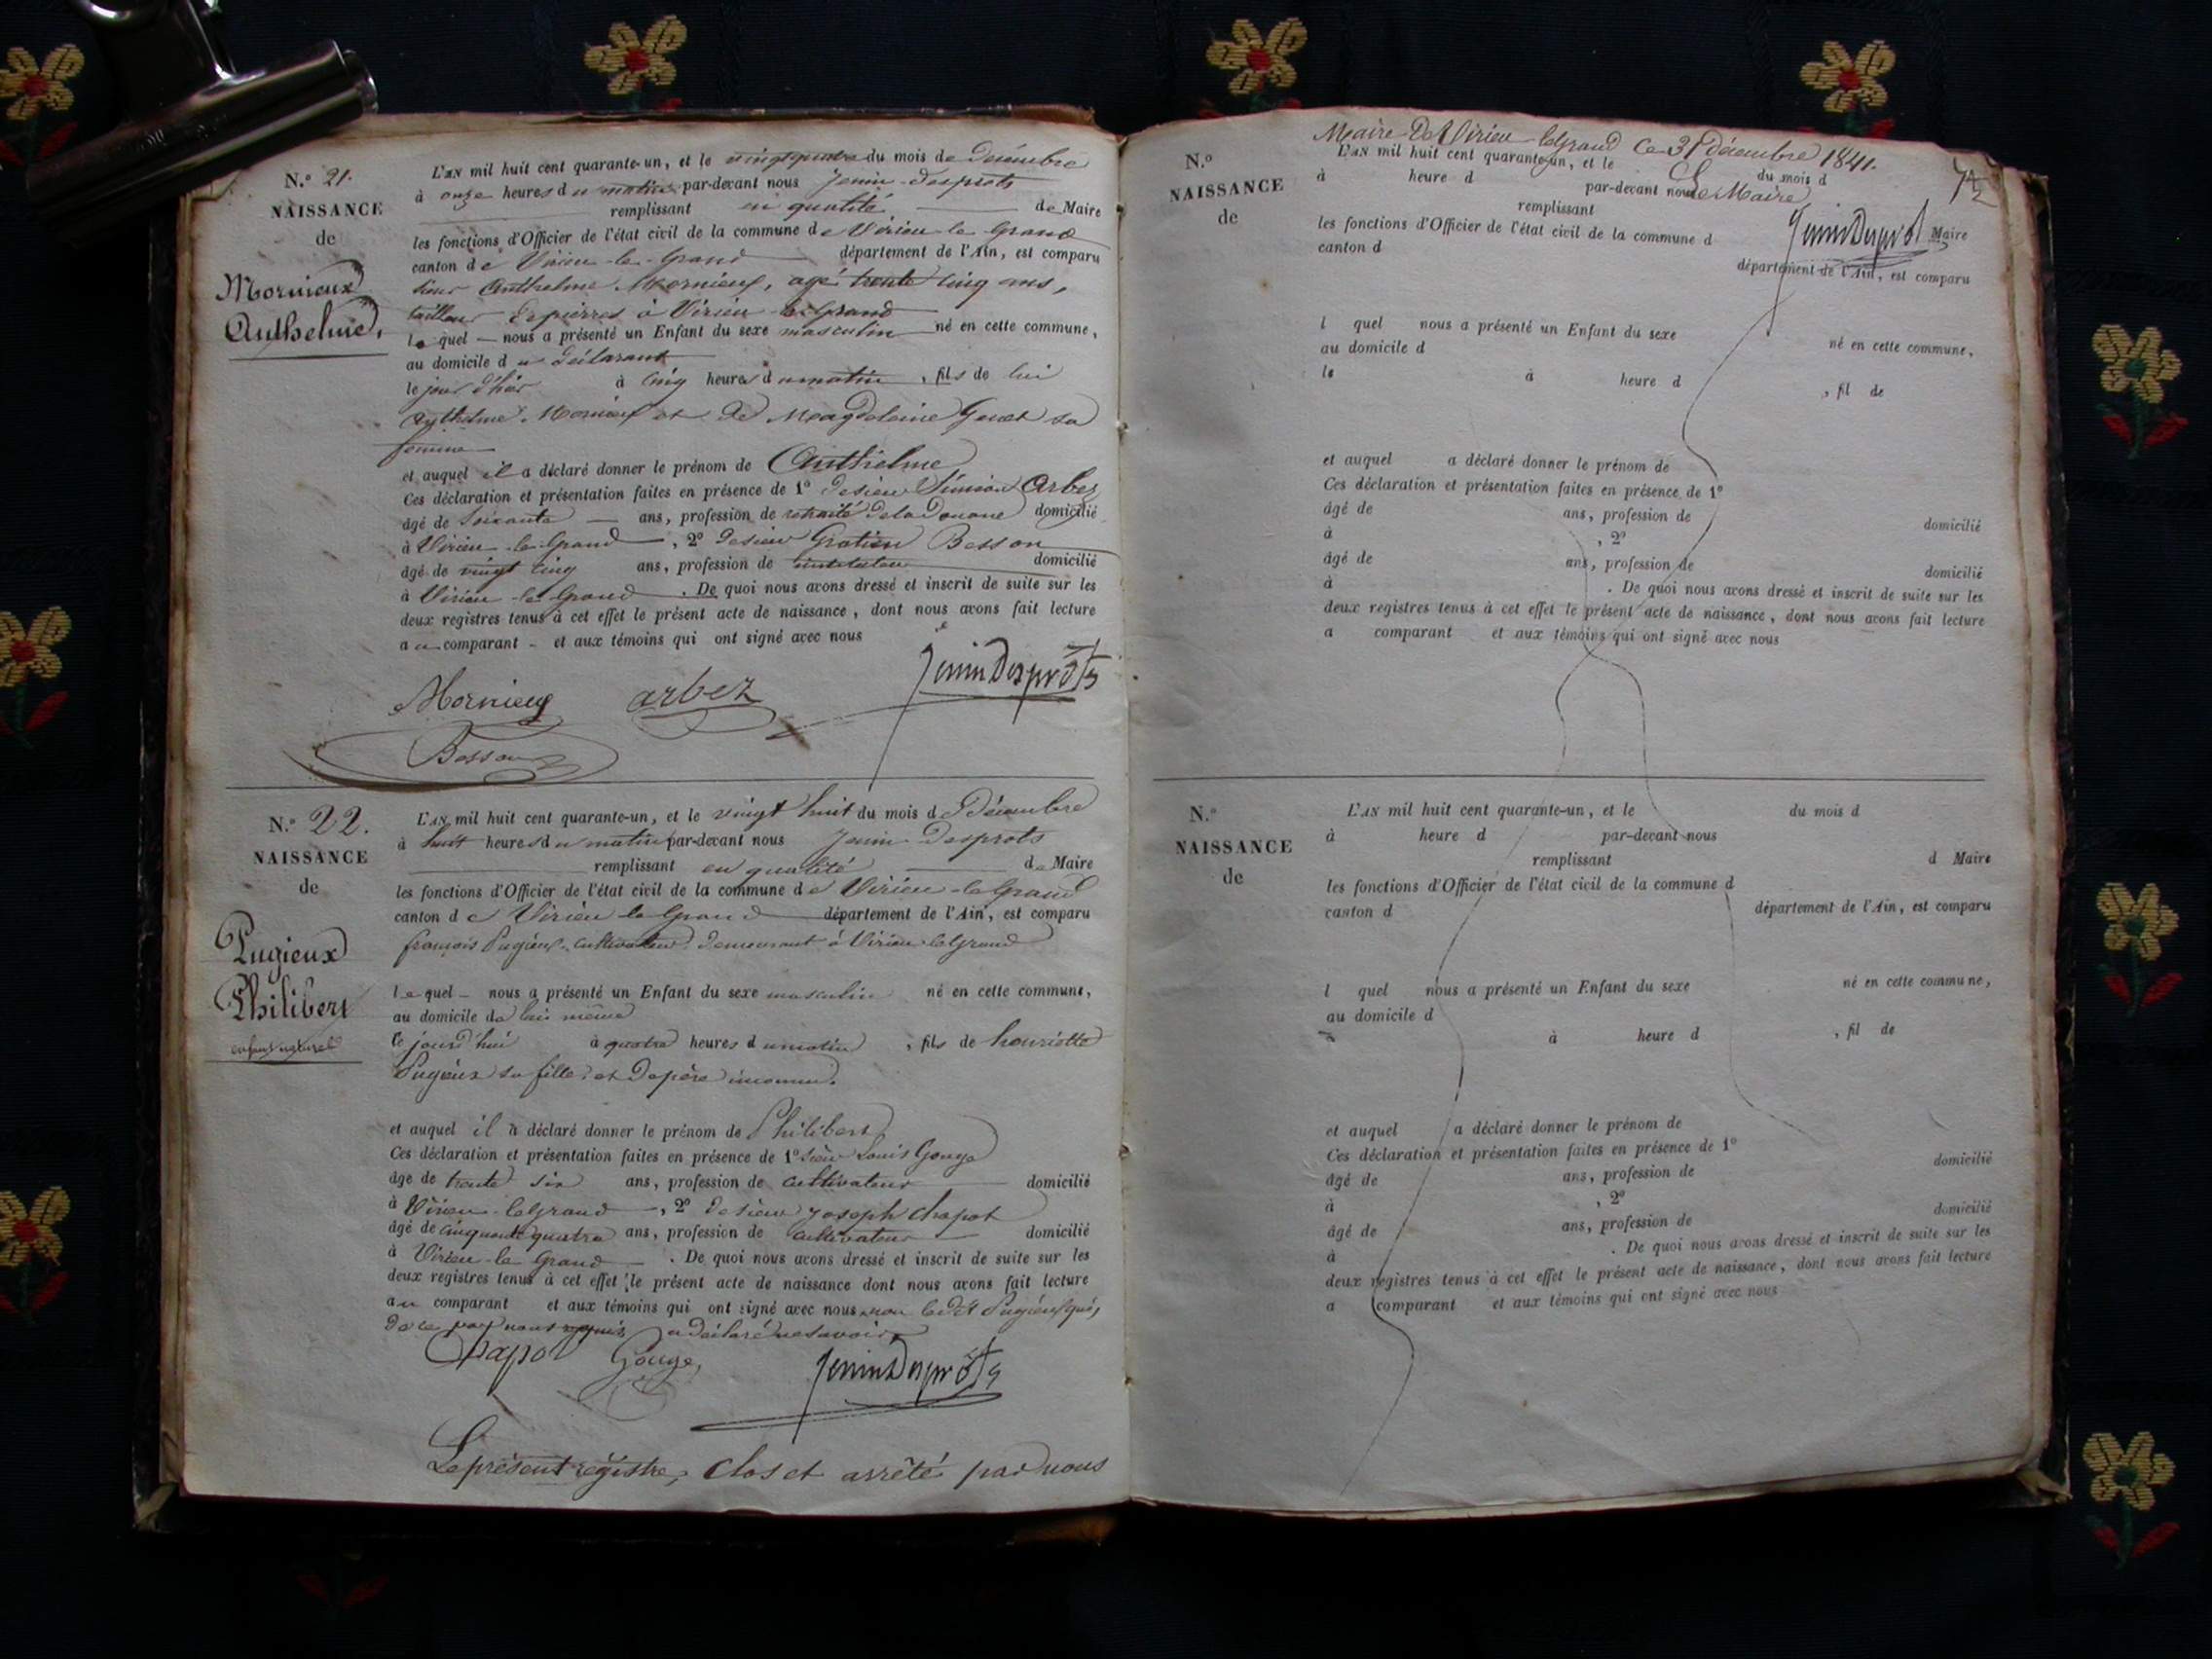 N.º 21.
NAISSANCE
de
Mornieux
Anthelme.
L'AN mil huit cent quarante-un, et le vingtquatre du mois de Décembre
à onze heures du matin par-devant nous Jenin-Desprots
remplissant en qualité de Maire
les fonctions d'Officier de l'état civil de la commune de Virieu-le-Grand
canton de Virieu-le-Grand département de l'Ain, est comparu
sieur Anthelme Mornieux, agé trente cinq ans,
tailleur de pierres à Virieu le Grand
lequel nous a présenté un Enfant du sexe masculin né en cette commune,
au domicile du déclarant
le jour d'hier à cinq heures du matin, fils de lui
Anthelme Mornieux et de Magdeleine Genet sa
femme
et auquel il a déclaré donner le prénom de Anthelme
Ces déclaration et présentation faites en présence de 1º de sieur Simeon Arbez
âgé de soixante ans, profession de retraité de la Douane domicilié
à Virieu-le-Grand, 2º de sieur Gratien Besson
âgé de vingt cinq ans, profession de instituteur domicilié
à Virieu-le-Grand. De quoi nous avons dressé et inscrit de suite sur les
deux registres tenus à cet effet le présent acte de naissance, dont nous avons fait lecture
au comparant et aux témoins qui ont signé avec nous
Mornieux arbez JeninDesprots
Besson
N.º 22.
NAISSANCE
de
Pugieux
Philibert
enfant naturel
L'AN mil huit cent quarante-un, et le vingt huit du mois de Décembre
à huit heures du matin par-devant nous Jenin-Desprots
remplissant en qualité de Maire
les fonctions d'Officier de l'état civil de la commune de Virieu-le-Grand
canton de Virieu le Grand département de l'Ain, est comparu
françois Pugieux, cultivateur demeurant à Virieu le Grand
lequel nous a présenté un Enfant du sexe masculin né en cette commune,
au domicile de lui même
le jourd'hui à quatre heures du matin, fils de henriette
Pugieux sa fille et de père inconnu.
et auquel il a déclaré donner le prénom de Philibert
Ces déclaration et présentation faites en présence de 1º sieur Louis Gouge
âge de trente six ans, profession de cultivateur domicilié
à Virieu-le Grand, 2º de sieur Joseph Chapot
âgé de cinquante quatre ans, profession de cultivateur domicilié
à Virieu-le Grand. De quoi nous avons dressé et inscrit de suite sur les
deux registres tenus à cet effet le présent acte de naissance dont nous avons fait lecture
au comparant et aux témoins qui ont signé avec nous non ledit Pugieux qui,
de ce par nous requis a déclaré ne savoir
Chapot Gouge JeninDesprots
Le présent régistre, Clos et arrêté par nous
Maire De Virieu-le Grand Ce 31 décembre 1841.
Le Maire
JeninDesprots
N.º
NAISSANCE
de
L'AN mil huit cent quarante-un, et le du mois d
à heure d par-devant nous
remplissant Maire
les fonctions d'Officier de l'état civil de la commune d
canton d département de l'Ain, est comparu
l quel nous a présenté un Enfant du sexe né en cette commune,
au domicile d
le à heure d , fil de
et auquel a déclaré donner le prénom de
Ces déclaration et présentation faites en présence de 1º
âgé de ans, profession de domicilié
à , 2º
âgé de ans, profession de domicilié
à . De quoi nous avons dressé et inscrit de suite sur les
deux registres tenus à cet effet le présent acte de naissance, dont nous avons fait lecture
a comparant et aux témoins qui ont signé avec nous
N.º
NAISSANCE
de
L'AN mil huit cent quarante-un, et le du mois d
à heure d par-devant nous
remplissant d Maire
les fonctions d'Officier de l'état civil de la commune d
canton d département de l'Ain, est comparu
l quel nous a présenté un Enfant du sexe né en cette commune,
au domicile d
à heure d , fil de
et auquel a déclaré donner le prénom de
Ces déclaration et présentation faites en présence de 1º
âgé de ans, profession de domicilié
à , 2º
âgé de ans, profession de domicilié
à . De quoi nous avons dressé et inscrit de suite sur les
deux registres tenus à cet effet le présent acte de naissance, dont nous avons fait lecture
a comparant et aux témoins qui ont signé avec nous